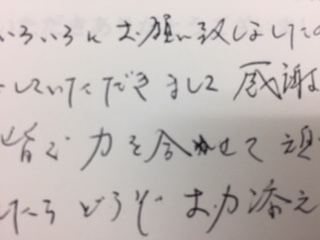 いろいろにお願い致しましたの
していただきまして 感謝
皆で 力を合わせて 頑
したら どうぞ お力添え